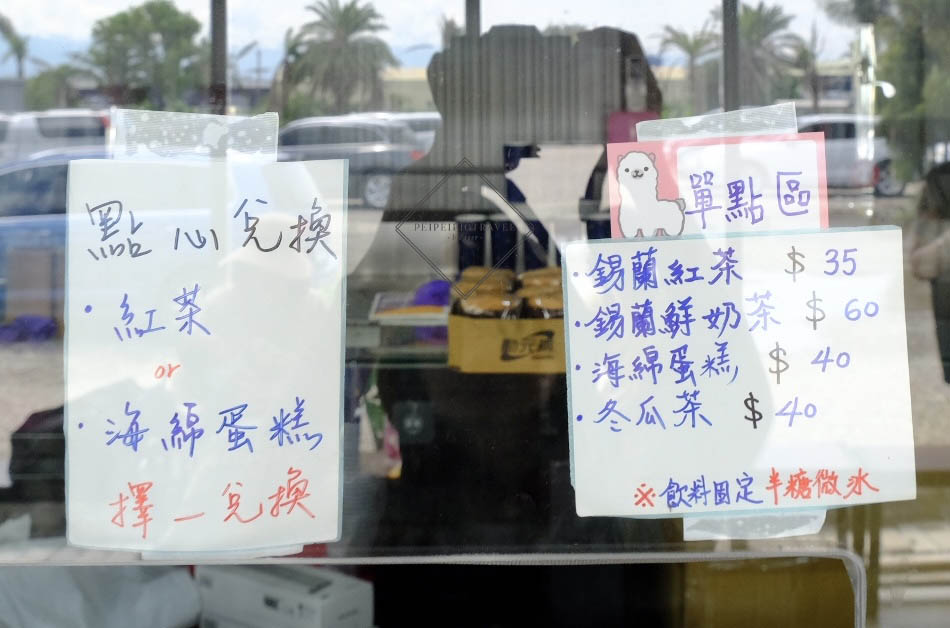 點心兌換
·紅茶
or
·海綿蛋糕
擇一兌換
PEIPEIHOTRAVEL
單點區
·錫蘭紅茶 $35
·錫蘭鮮奶茶 $60
·海綿蛋糕 $40
·冬瓜茶 $40
※飲料固定半糖微冰